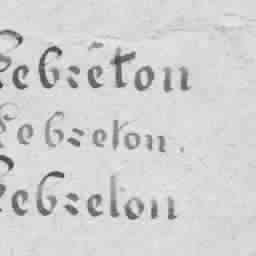 Lebrêton
Lebreton.
Lebreton